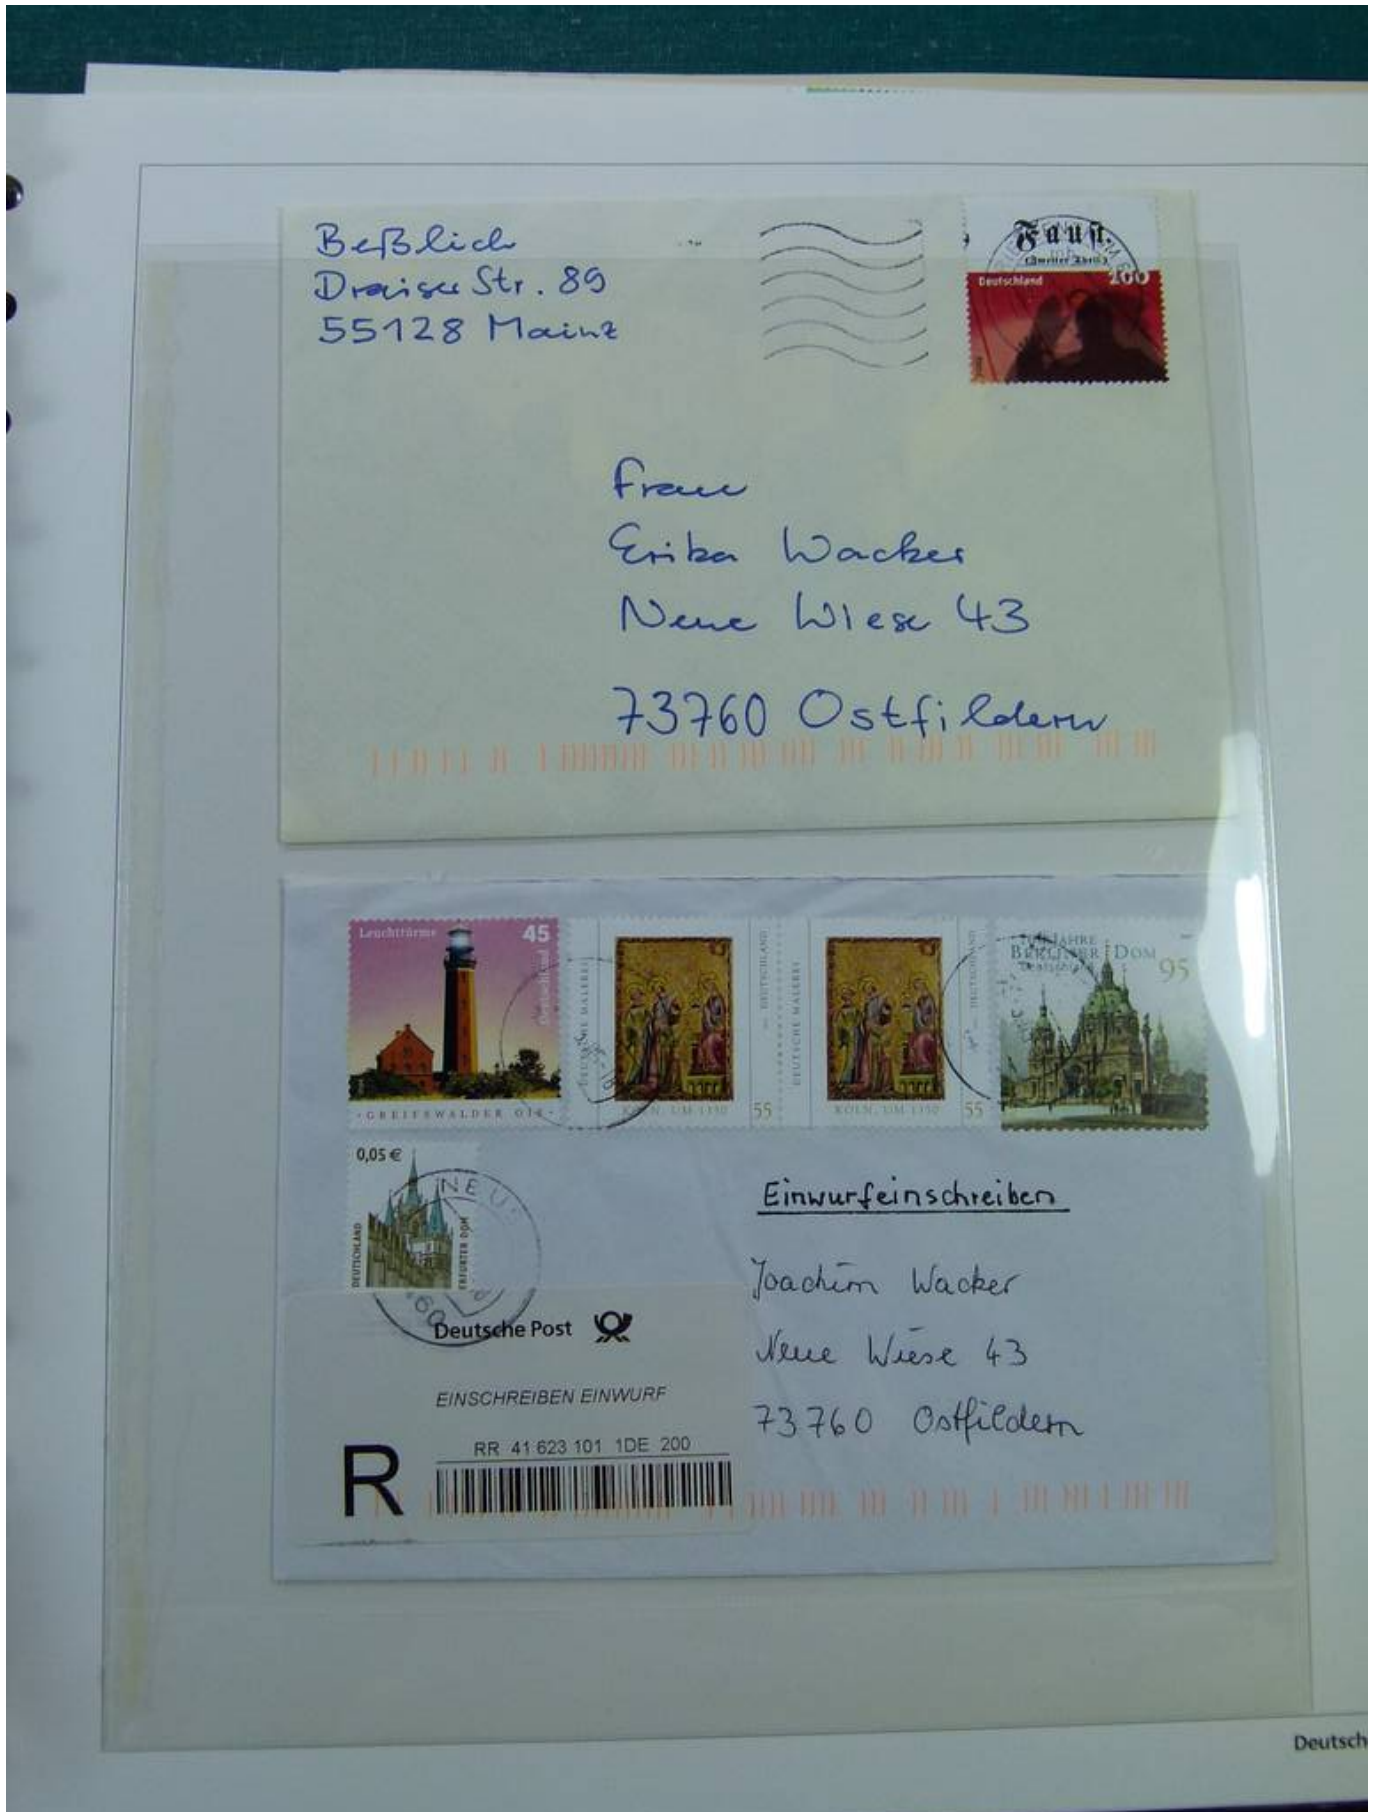 Beßlich
Draiser Str. 89
55128 Mainz
Faust.
(Zweiter Theil.)
Deutschland
160
Frau
Erika Wacker
Neue Wiese 43
73760 Ostfildern
Leuchttürme 45
Deutschland
GREIFSWALDER OIE
DEUTSCHE MALEREI
DEUTSCHLAND
KÖLN, UM 1350 55
DEUTSCHE MALEREI
DEUTSCHLAND
KÖLN, UM 1350 55
JAHRE
BERLINER DOM
Deutschland
95
0,05 €
DEUTSCHLAND
ERFURTER DOM
NEU
Einwurfeinschreiben
Joachim Wacker
Neue Wiese 43
73760 Ostfildern
Deutsche Post
EINSCHREIBEN EINWURF
RR 41 623 101 1DE 200
R
Deutsch